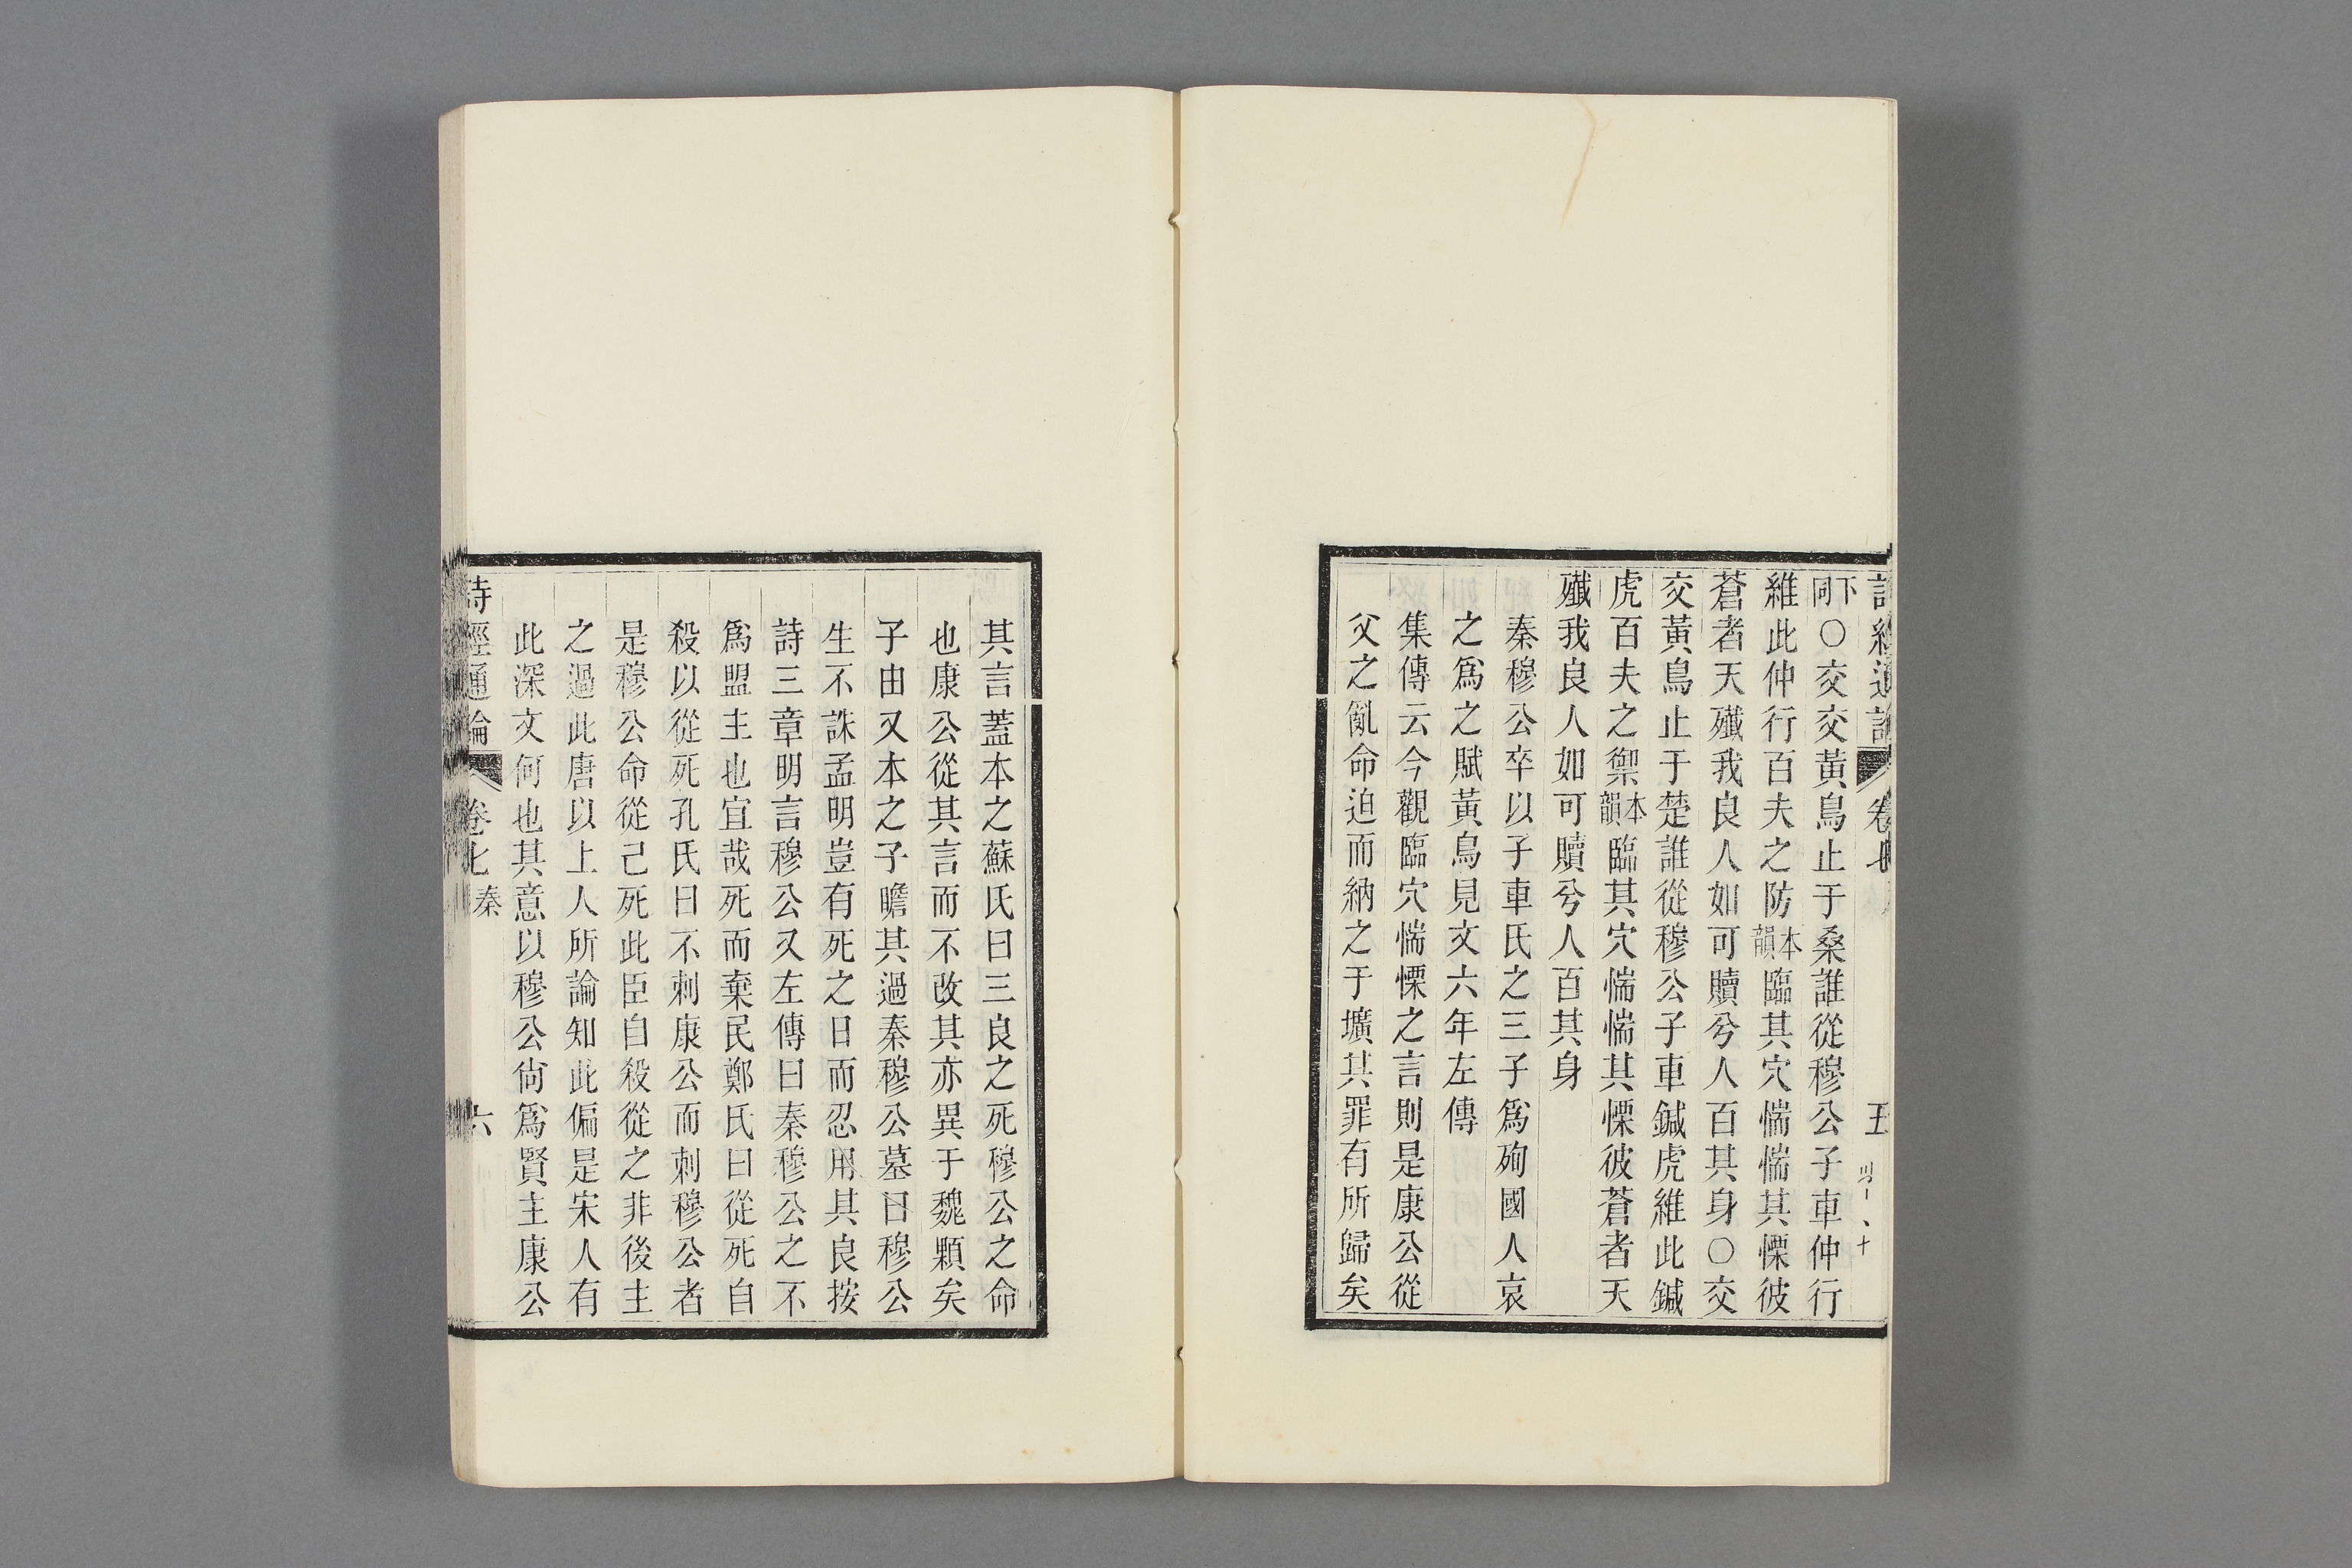 下同〇交交黃鳥止于桑誰從穆公子車仲行
維此仲行百夫之防本韻臨其穴惴惴其慄彼
蒼者天殲我良人如可贖兮人百其身〇交
交黃鳥止于楚誰從穆公子車鍼虎維此鍼
虎百夫之禦本韻臨其穴惴惴其慄彼蒼者天
殲我良人如可贖兮人百其身
秦穆公卒以子車氏之三子爲殉國人哀
之爲之賦黃鳥見文六年左傳
集傳云今觀臨穴惴慄之言則是康公從
父之亂命迫而納之于壙其罪有所歸矣
其言蓋本之蘇氏曰三良之死穆公之命
也康公從其言而不改其亦異于魏顆矣
子由又本之子瞻其過秦穆公墓曰穆公
生不誅孟明豈有死之日而忍用其良按
詩三章明言穆公又左傳曰秦穆公之不
爲盟主也宜哉死而棄民鄭氏曰從死自
殺以從死孔氏曰不刺康公而刺穆公者
是穆公命從己死此臣自殺從之非後主
之過此唐以上人所論知此偏是宋人有
此深文何也其意以穆公尙爲賢主康公
詩經通論 卷七 秦 六